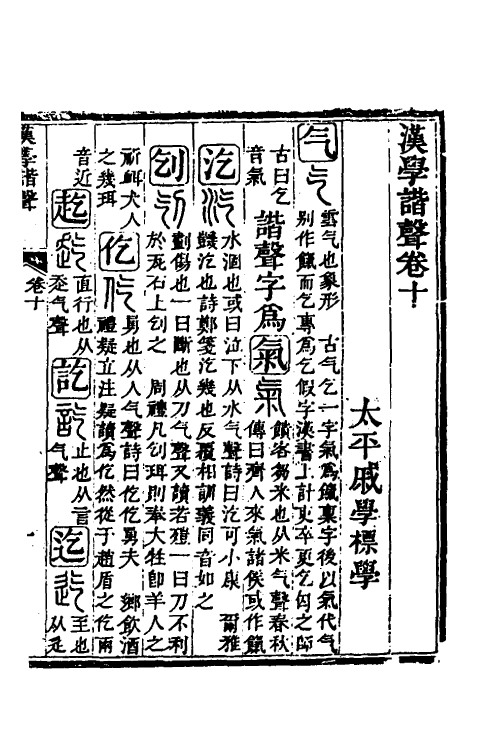 漢學諧聲卷十
太平戚學標學
气 雲气也象形 古气乞一字氣爲餼稟字後以氣代气
别作餼而乞專爲乞假字漢書上計吏卒更乞匃之師
古曰乞
音氣
諧聲字爲
氣 饋客芻米也从米气聲春秋
傳曰齊人來氣諸侯或作餼
汔 水涸也或曰泣下从水气聲詩曰汔可小康 爾雅
䜴汔也詩鄭箋汔幾也反覆相訓義同音如之
刉 劃傷也一曰斷也从刀气聲又讀若殪一曰刀不利
於瓦石上刉之 周禮凡刉珥則奉犬牲卽羊人之
祈衈犬人
之幾珥
仡 勇也从人气聲詩曰仡仡勇夫 鄉飲酒
禮疑立注疑讀爲仡然從于趙盾之仡兩
音近
趌 直行也从
走气聲
訖 止也从言
气聲
迄 至也
从辵
漢學諧聲
卷十